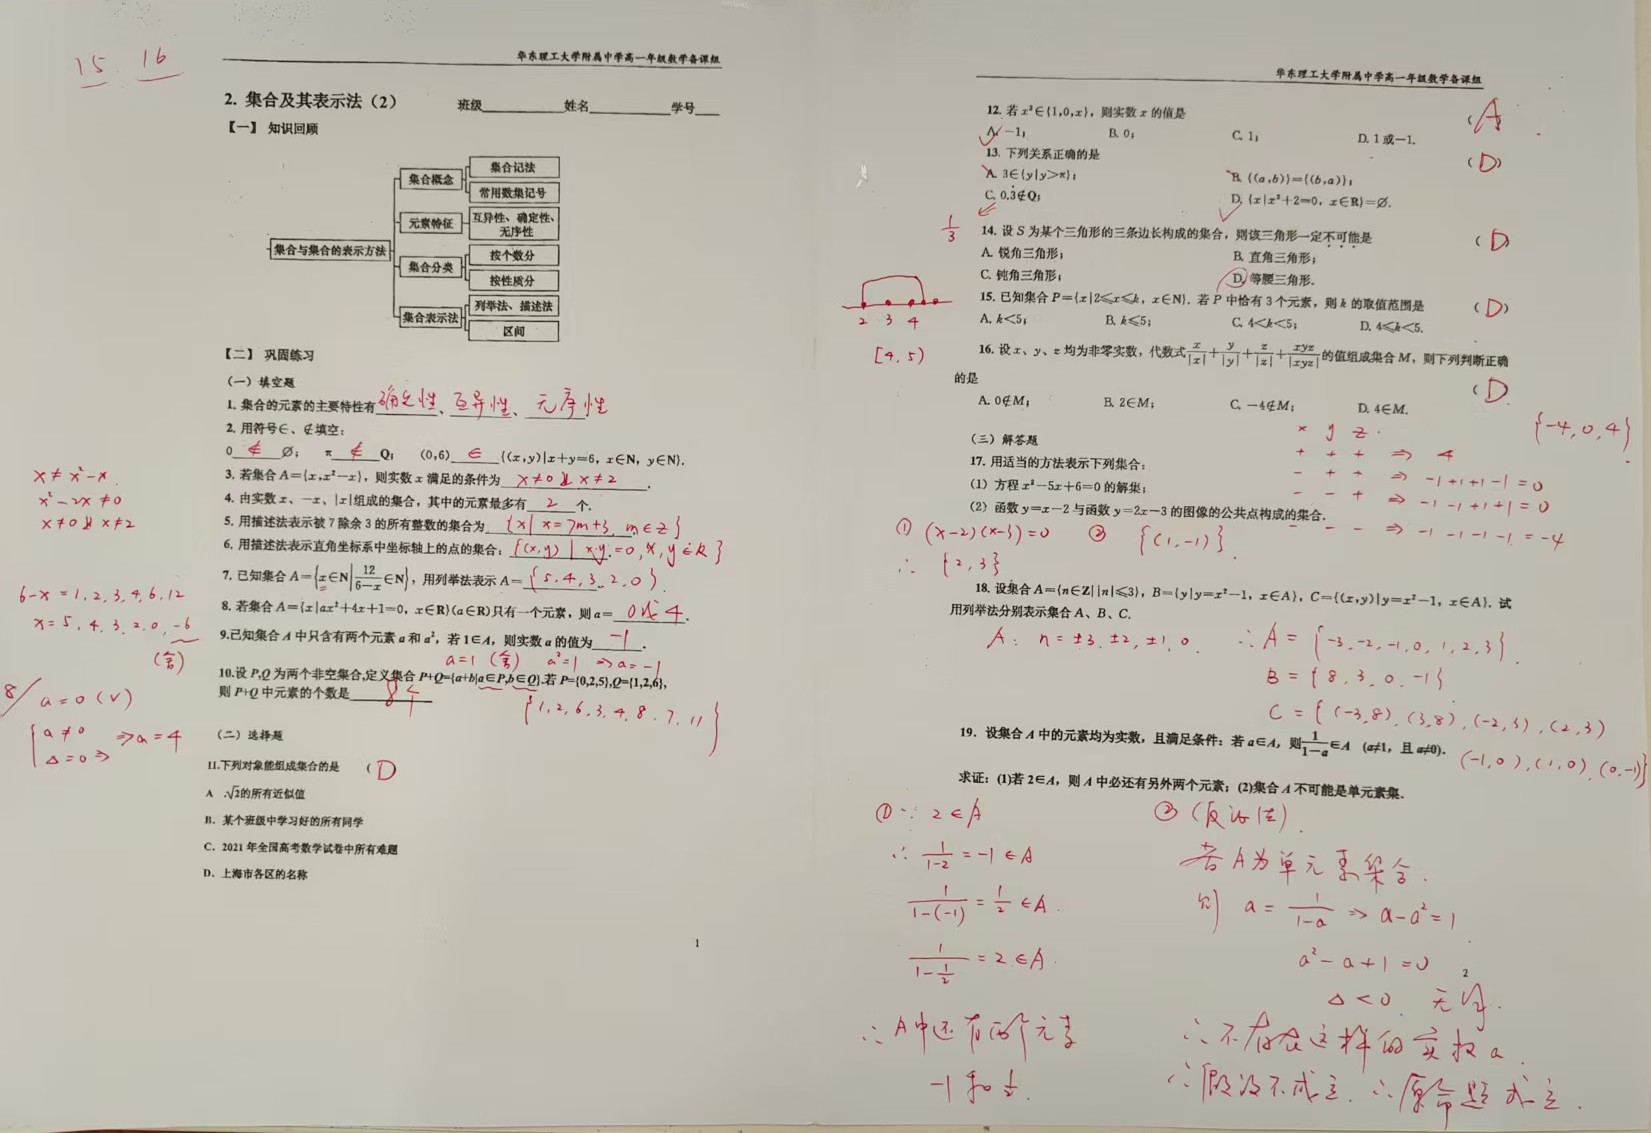 15 16
华东理工大学附属中学高一年级数学备课组
2. 集合及其表示法（2） 班级 姓名 学号
【一】 知识回顾
集合与集合的表示方法
集合概念
集合记法
常用数集记号
元素特征
互异性、确定性、
无序性
集合分类
按个数分
按性质分
集合表示法
列举法、描述法
区间
【二】 巩固练习
（一）填空题
1. 集合的元素的主要特性有 确定性、互异性、无序性
2. 用符号∈、∉填空：
0 ∉ ∅； π ∉ Q； (0,6) ∈ {(x,y)|x+y=6，x∈N，y∈N}.
3. 若集合A={x,x²−x}，则实数x满足的条件为 x≠0且x≠2 .
x≠x²−x.
x²−2x≠0
x≠0且x≠2
4. 由实数x、−x、|x|组成的集合，其中的元素最多有 2 个.
5. 用描述法表示被7除余3的所有整数的集合为 {x|x=7m+3, m∈Z}
6. 用描述法表示直角坐标系中坐标轴上的点的集合： {(x,y)|x·y=0,x,y∈R}
7. 已知集合A={x∈N|12/(6−x)∈N}，用列举法表示A= {5,4,3,2,0}
6−x=1,2,3,4,6,12
x=5,4,3,2,0,−6
(舍)
8. 若集合A={x|ax²+4x+1=0，x∈R}(a∈R)只有一个元素，则a= 0或4 .
9.已知集合A中只含有两个元素a和a²，若1∈A，则实数a的值为 −1 .
a=1 (舍) a²=1 ⇒a=−1
10.设P,Q为两个非空集合,定义集合P+Q={a+b|a∈P,b∈Q}.若P={0,2,5},Q={1,2,6},
则P+Q中元素的个数是 8个
{1,2,6,3,4,8,7,11}
8/ a=0 (√)
{a≠0
△=0⇒ ⇒a=4
（二）选择题
11.下列对象能组成集合的是 （D）
A .√2的所有近似值
B. 某个班级中学习好的所有同学
C. 2021年全国高考数学试卷中所有难题
D. 上海市各区的名称
1
华东理工大学附属中学高一年级数学备课组
12. 若x²∈{1,0,x}，则实数x的值是 （A）
A. −1； B. 0； C. 1； D. 1或−1.
13. 下列关系正确的是 （D）
A. 3∈{y|y>π}； B. {(a,b)}={(b,a)}；
C. 0.3̇∉Q； D. {x|x²+2=0，x∈R}=∅.
1/3
14. 设S为某个三角形的三条边长构成的集合，则该三角形一定不可能是 （D）
A. 锐角三角形； B. 直角三角形；
C. 钝角三角形； D. 等腰三角形.
15. 已知集合P={x|2⩽x⩽k，x∈N}. 若P中恰有3个元素，则k的取值范围是 （D）
A. k<5； B. k⩽5； C. 4<k<5； D. 4⩽k<5.
2 3 4
[4,5)
16. 设x、y、z均为非零实数，代数式x/|x|+y/|y|+z/|z|+xyz/|xyz|的值组成集合M，则下列判断正确
的是 （D）
A. 0∉M； B. 2∈M； C. −4∉M； D. 4∈M.
{−4,0,4}
x y z
+ + + ⇒ 4
− + + ⇒ −1+1+1−1=0
− − + ⇒ −1−1+1+1=0
− − − ⇒ −1−1−1−1=−4
（三）解答题
17. 用适当的方法表示下列集合：
（1）方程x²−5x+6=0的解集；
（2）函数y=x−2与函数y=2x−3的图像的公共点构成的集合.
① (x−2)(x−3)=0 ② {(1,−1)}.
∴ {2,3}
18. 设集合A={n∈Z||n|⩽3}，B={y|y=x²−1，x∈A}，C={(x,y)|y=x²−1，x∈A}. 试
用列举法分别表示集合A、B、C.
A: n=±3,±2,±1,0 ∴A={−3,−2,−1,0,1,2,3}.
B={8,3,0,−1}
C={(−3,8),(3,8),(−2,3),(2,3)
(−1,0),(1,0),(0,−1)}
19. 设集合A中的元素均为实数，且满足条件：若a∈A，则1/(1−a)∈A (a≠1，且a≠0).
求证：(1)若2∈A，则A中必还有另外两个元素；(2)集合A不可能是单元素集.
①∵ 2∈A
∴ 1/(1−2)=−1∈A
1/(1−(−1))=1/2∈A.
1/(1−1/2)=2∈A.
∴A中还有两个元素
−1和1/2.
②(反证法).
若A为单元素集合.
则 a=1/(1−a) ⇒ a−a²=1
a²−a+1=0
△<0. 无解.
∴不存在这样的实数a.
∴假设不成立. ∴原命题成立.
2